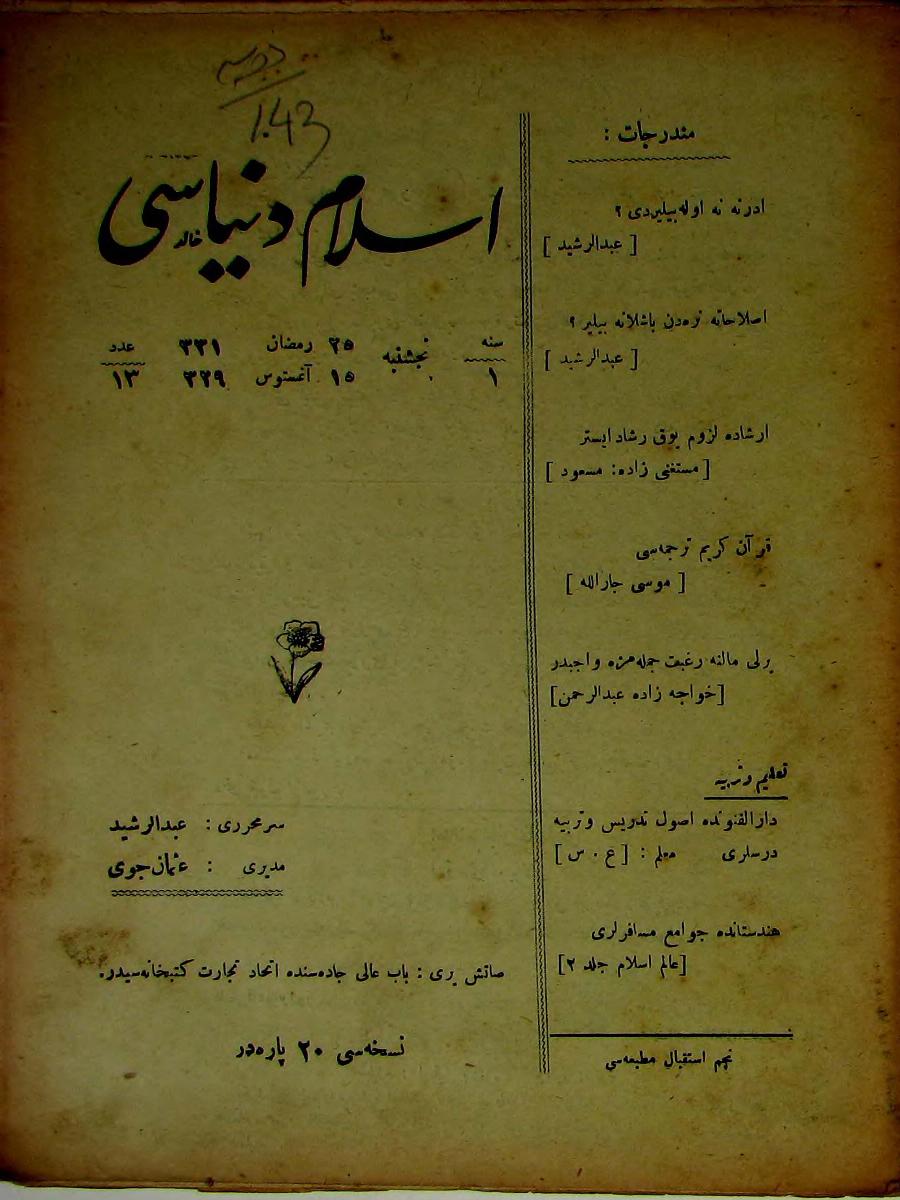 1043
اسلام دنیاسی
سنه ۲۵ رمضان ۳۳۱ عدد
نجشنبه
۱ ۱۵ آغستوس ۳۲۹ ۱۳
سرمحرری : عبدالرشید
مدیری : عثمان جودی
صاتش یری : باب عالی جاده‌سنده اتحاد تجارت کتبخانه‌سیدر.
نسخه‌سی ۲۰ پاره‌در
مندرجات :
ادرنه نه اوله‌بیلیردی ؟
[ عبدالرشید ]
اصلاحاته نره‌دن باشلانه بیلیر ؟
[ عبدالرشید ]
ارشاده لزوم یوق رشاد ایستر
[ مستغنی زاده: مسعود ]
قرآن کریم ترجمه‌سی
[ موسی جارالله ]
یرلی مالنه رغبت جمله‌مزه واجبدر
[خواجه زاده عبدالرحمن]
تعلیم و تربیه
دارالفنونده اصول تدریس و تربیه
درسلری معلم : [ ع . س ]
هندستانده جوامع مسافرلری
[عالم اسلام جلد ۲]
نجم استقبال مطبعه‌سی